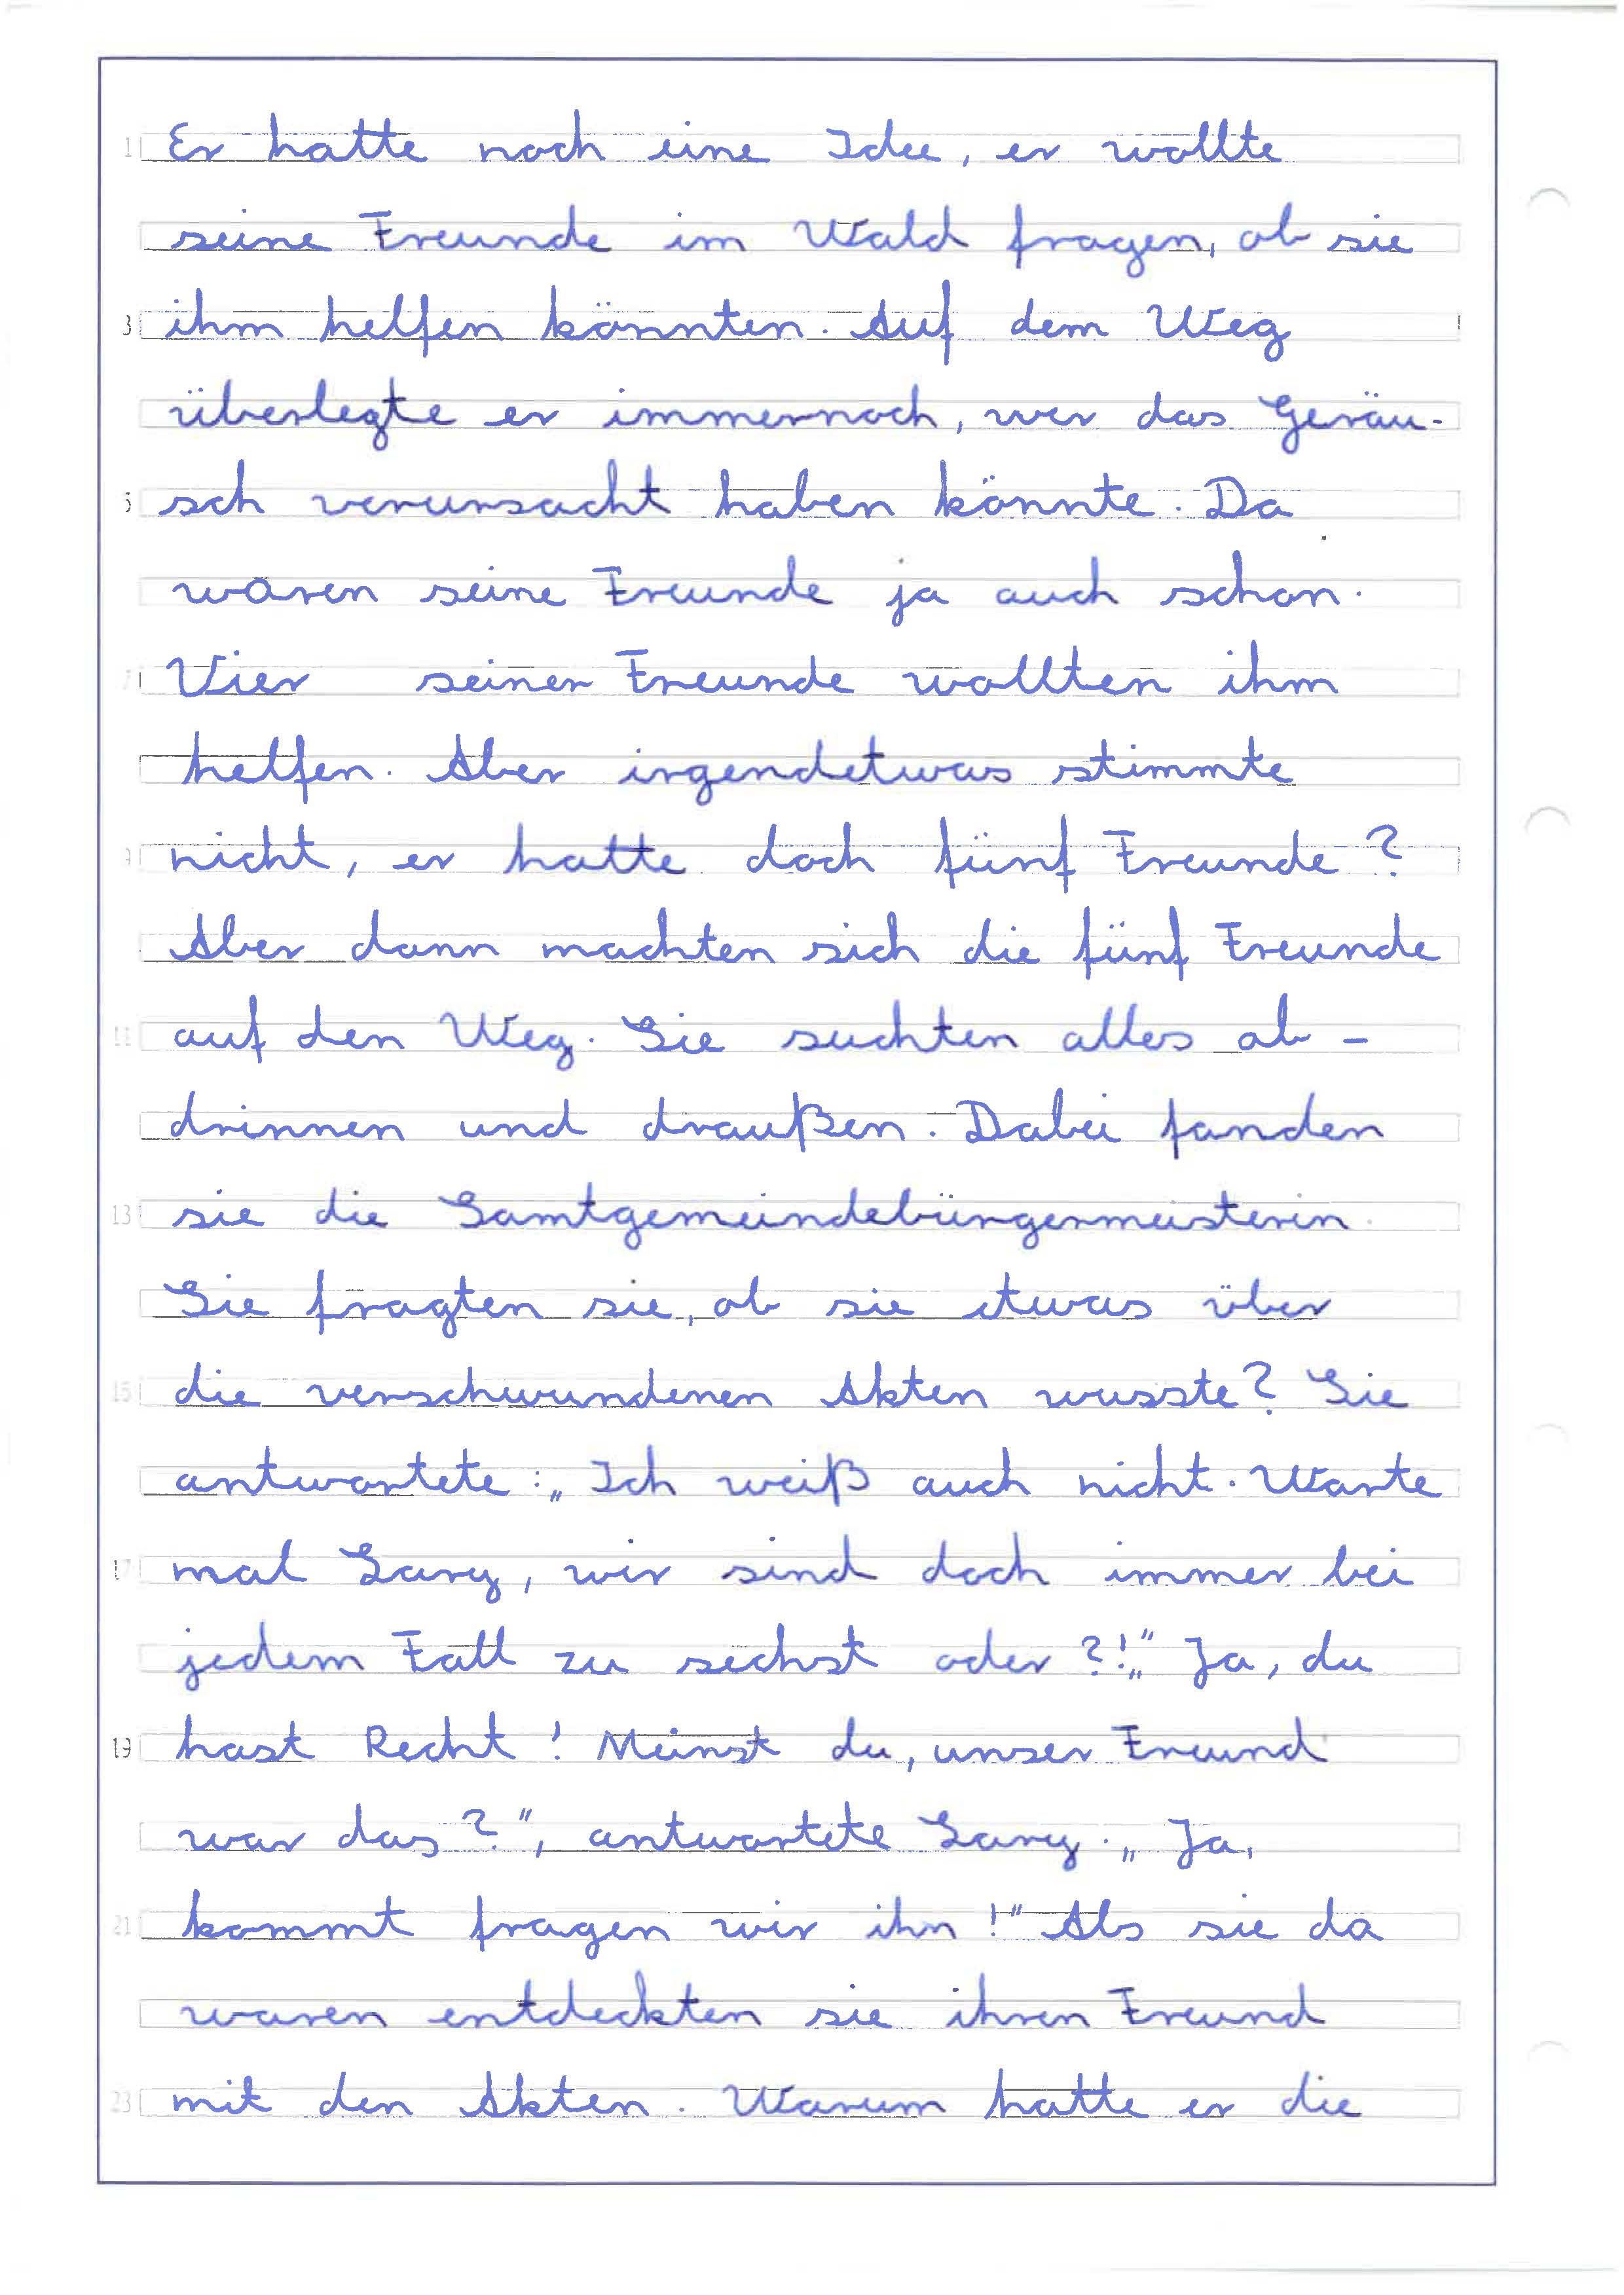 1 Er hatte noch eine Idee, er wollte
seine Freunde im Wald fragen, ob sie
3 ihm helfen könnten. Auf dem Weg
überlegte er immernoch, wer das Geräu-
5 sch verursacht haben könnte. Da
waren seine Freunde ja auch schon.
7 Vier seiner Freunde wollten ihm
helfen. Aber irgendetwas stimmte
9 nicht, er hatte doch fünf Freunde?
Aber dann machten sich die fünf Freunde
11 auf den Weg. Sie suchten alles ab -
drinnen und draußen. Dabei fanden
13 sie die Samtgemeindebürgermeisterin.
Sie fragten sie, ob sie etwas über
15 die verschwundenen Akten wusste? Sie
antwortete: „Ich weiß auch nicht. Warte
17 mal Sary, wir sind doch immer bei
jedem Fall zu sechst oder?!" „Ja, du
19 hast Recht! Meinst du, unser Freund
war das?", antwortete Sary. „Ja,
21 kommt fragen wir ihn!" Als sie da
waren entdeckten sie ihren Freund
23 mit den Akten. Warum hatte er die